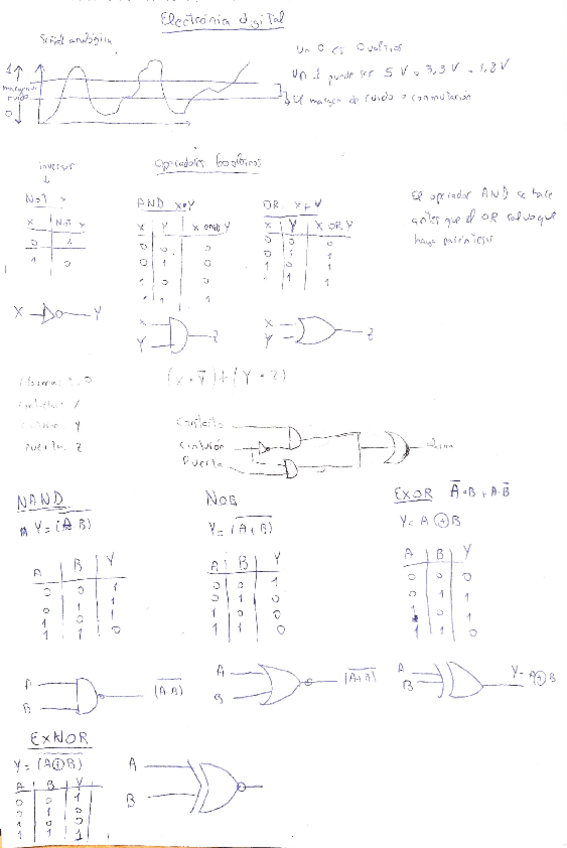 Electrónia digital
Señal analógica
Un 0 es 0 voltios
Un 1 puede ser 5 V o 3,3 V o 1,8 V
1
ruido
0
El margen de ruido o conmutación
inversor
Operadores booleanos
NOT x
AND X•Y
OR X+Y
El operador AND se hace
antes que el OR salvo que
haya paréntesis
X NOT X
0 1
1 0
X Y X AND Y
0 0 0
0 1 0
1 0 0
1 1 1
X Y X OR Y
0 0 0
0 1 1
1 0 1
1 1 1
X Y
X Y Z
X Y Z
(X • Y̅) + (Y • Z)
X
Y
Puerta Z
Contacto
Cinturón
Puerta
NAND
NOR
EXOR A̅•B + A•B̅
Y = (A̅ B̅)
Y = (A̅+̅B̅)
Y = A ⊕ B
A B Y
0 0 1
0 1 1
1 0 1
1 1 0
A B Y
0 0 1
0 1 0
1 0 0
1 1 0
A B Y
0 0 0
0 1 1
1 0 1
1 1 0
A
B
(A̅·̅B̅)
A
B
(A̅+̅B̅)
A
B
Y = A⊕B
EXNOR
Y = (A̅⊕̅B̅)
A B Y
0 0 1
0 1 0
1 0 0
1 1 1
A
B